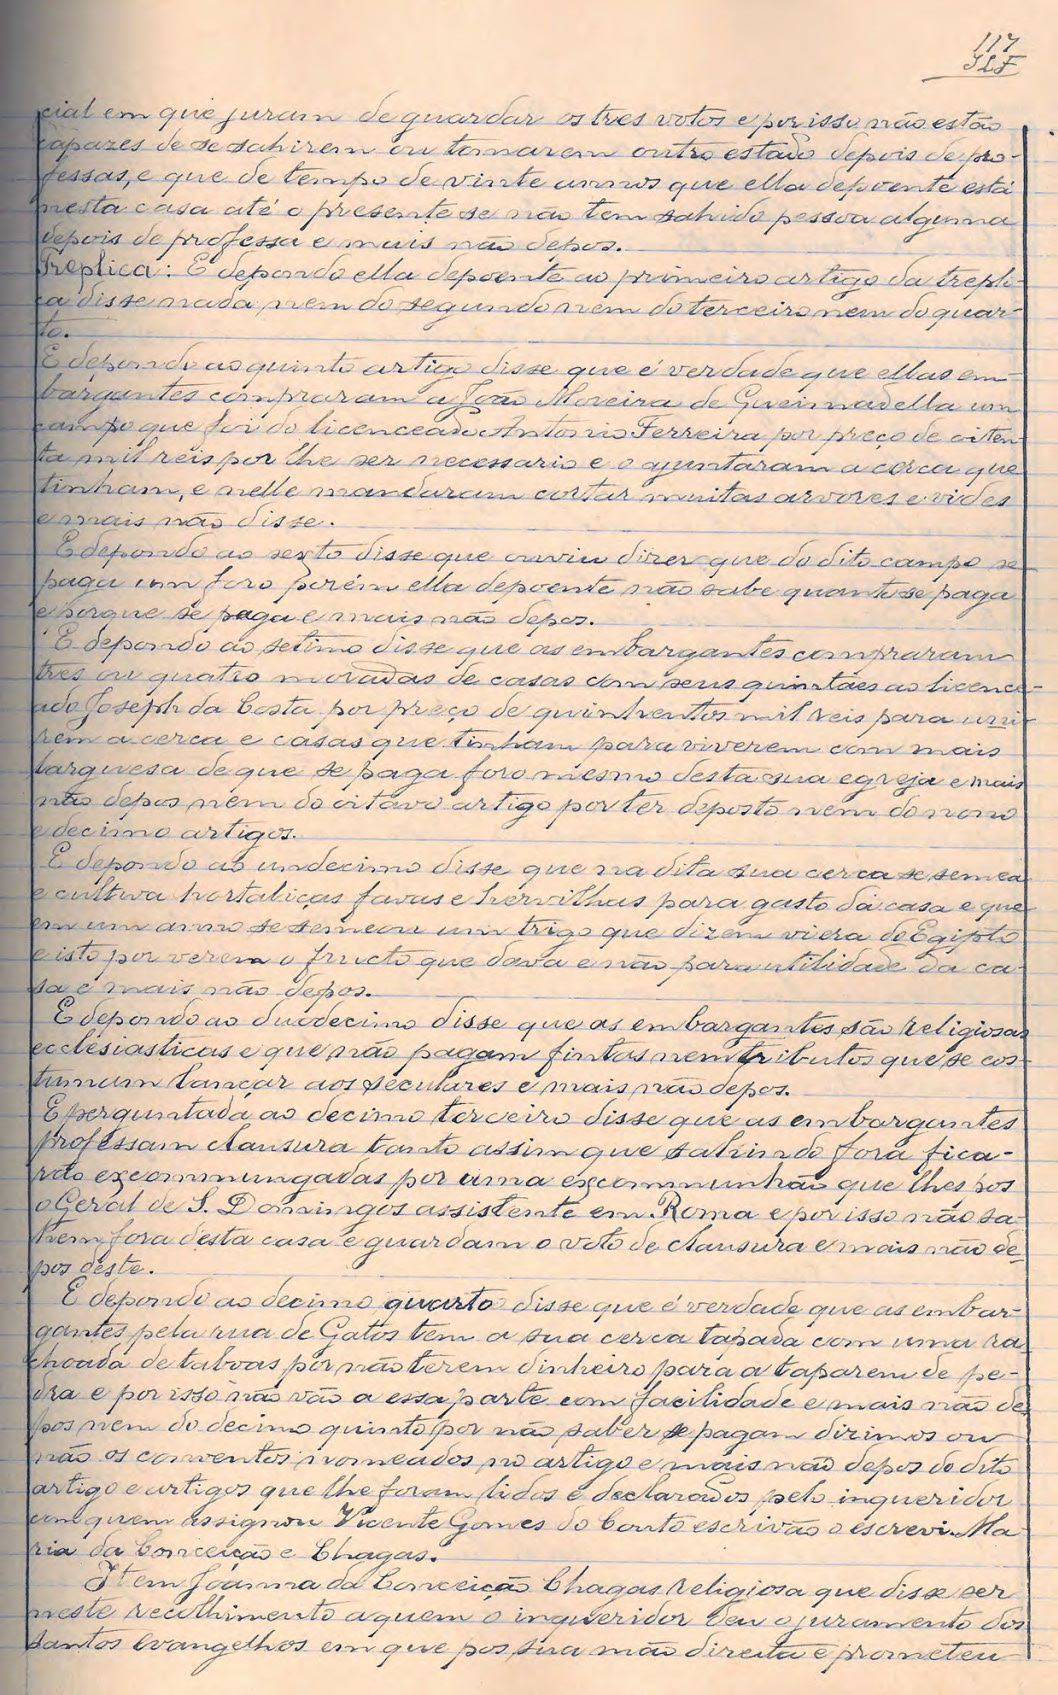 117
JLF
cial em que juram de guardar os tres votos e por isso não estão
capazes de se sahirem ou tomarem outro estado depois de pro-
fessas, e que de tempo de vinte annos que ella depoente está
nesta casa até o presente se não tem sahido pessoa alguma
depois de professa e mais não depos.
Treplica: E depondo ella depoente ao primeiro artigo da trepli-
ca disse nada nem do segundo nem do terceiro nem do quar-
to.
E depondo ao quinto artigo disse que é verdade que ellas em-
bargantes compraram a João Moreira de Gueimadella um
campo que foi do licenceado Antonio Ferreira por preço de oiten-
ta mil réis por lhe ser necessario e o ajuntaram a cerca que
tinham, e nelle mandaram cortar muitas arvores e vides
e mais não disse.
E depondo ao sexto disse que ouviu dizer que do dito campo se
paga um foro porém ella depoente não sabe quanto se paga
e porque se paga e mais não depos.
E depondo ao setimo disse que as embargantes compraram
tres ou quatro moradas de casas com seus quintães ao licence-
ado Joseph da Costa por preço de quinhentos mil reis para uni-
rem a cerca e casas que tinham para viverem com mais
larguesa de que se paga foro mesmo desta sua egreja e mais
não depos nem do oitavo artigo por ter deposto nem do nono
e decimo artigos.
E depondo ao undecimo disse que na dita sua cerca se semea
e cultiva hortaliças favas e hervilhas para gasto da casa e que
em um anno se semeou um trigo que dizem viera de Egipto
e isto por verem o fructo que dava e não para utilidade da ca-
sa e mais não depos.
E depondo ao duodecimo disse que as embargantes são religiosas
ecclesiasticas e que não pagam fintas nem tributos que se cos-
tumam lançar aos seculares e mais não depos.
E perguntada ao decimo terceiro disse que as embargantes
professam clausura tanto assim que sahindo fora fica-
rão excommungadas por uma excommunhão que lhes pos
o Geral de S. Domingos assistente em Roma e por isso não sa-
hem fora desta casa e guardam o voto de clausura e mais não de-
pos deste.
E depondo ao decimo quarto disse que é verdade que as embar-
gantes pela rua de Gatos tem a sua cerca tapada com uma ra-
choada de taboas por não terem dinheiro para a taparem de pe-
dra e por isso não vão a essa parte com facilidade e mais não de-
pos nem do decimo quinto por não saber se pagam dizimos ou
não os conventos nomeados no artigo e mais não depos do dito
artigo e artigos que lhe foram lidos e declarados pelo inqueridor
com quem assignou Vicente Gomes do Couto escrivão o escrevi. Ma-
ria da Conceição e Chagas.
Item Joanna da Conceição Chagas religiosa que disse ser
neste recolhimento a quem o inqueridor deu o juramento dos
santos Evangelhos em que pos sua mão direita e prometeu